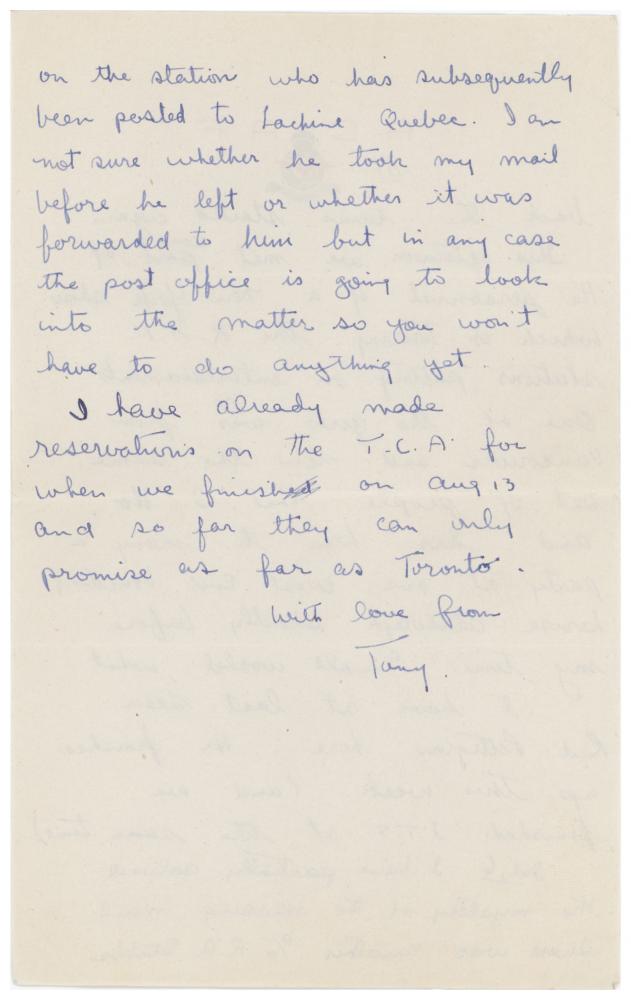 on the station who has subsequently
been posted to Lachine Quebec. I am
not sure whether he took my mail
before he left or whether it was
forwarded to him but in any case
the post office is going to look
into the matter so you won't
have to do anything yet.
I have already made
reservations on the T.C.A. for
when we finish on Aug 13
and so far they can only
promise as far as Toronto.
With love from
Tony.